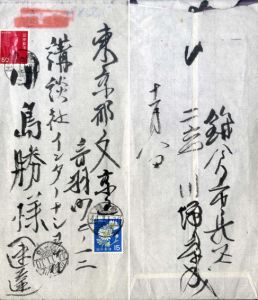 東京都文京区
音羽町二ノ一二
講談社インターナショナル
川島勝様
速達
50
15
十一月八日
鎌倉市長谷
二六四
川端康成